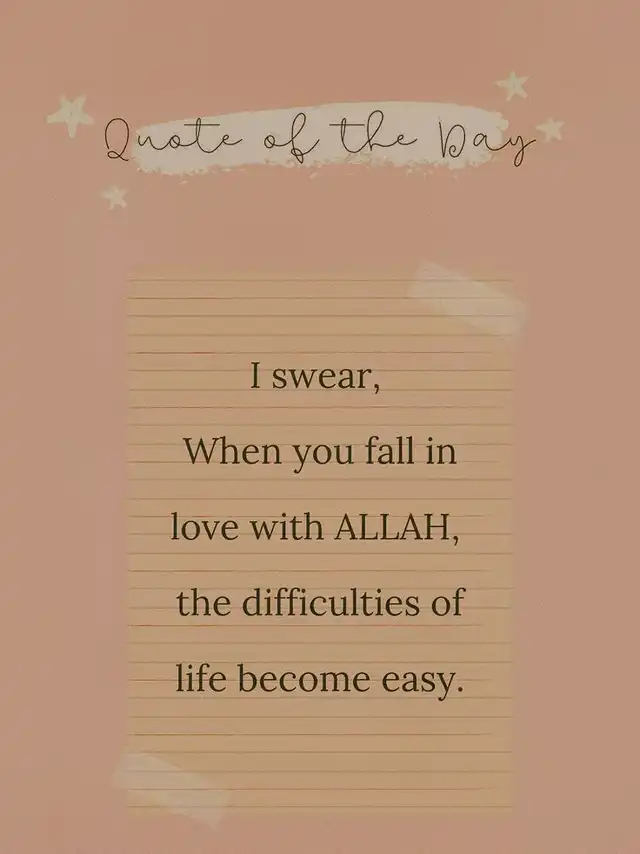 Quote of the Day
I swear,
When you fall in
love with ALLAH,
the difficulties of
life become easy.